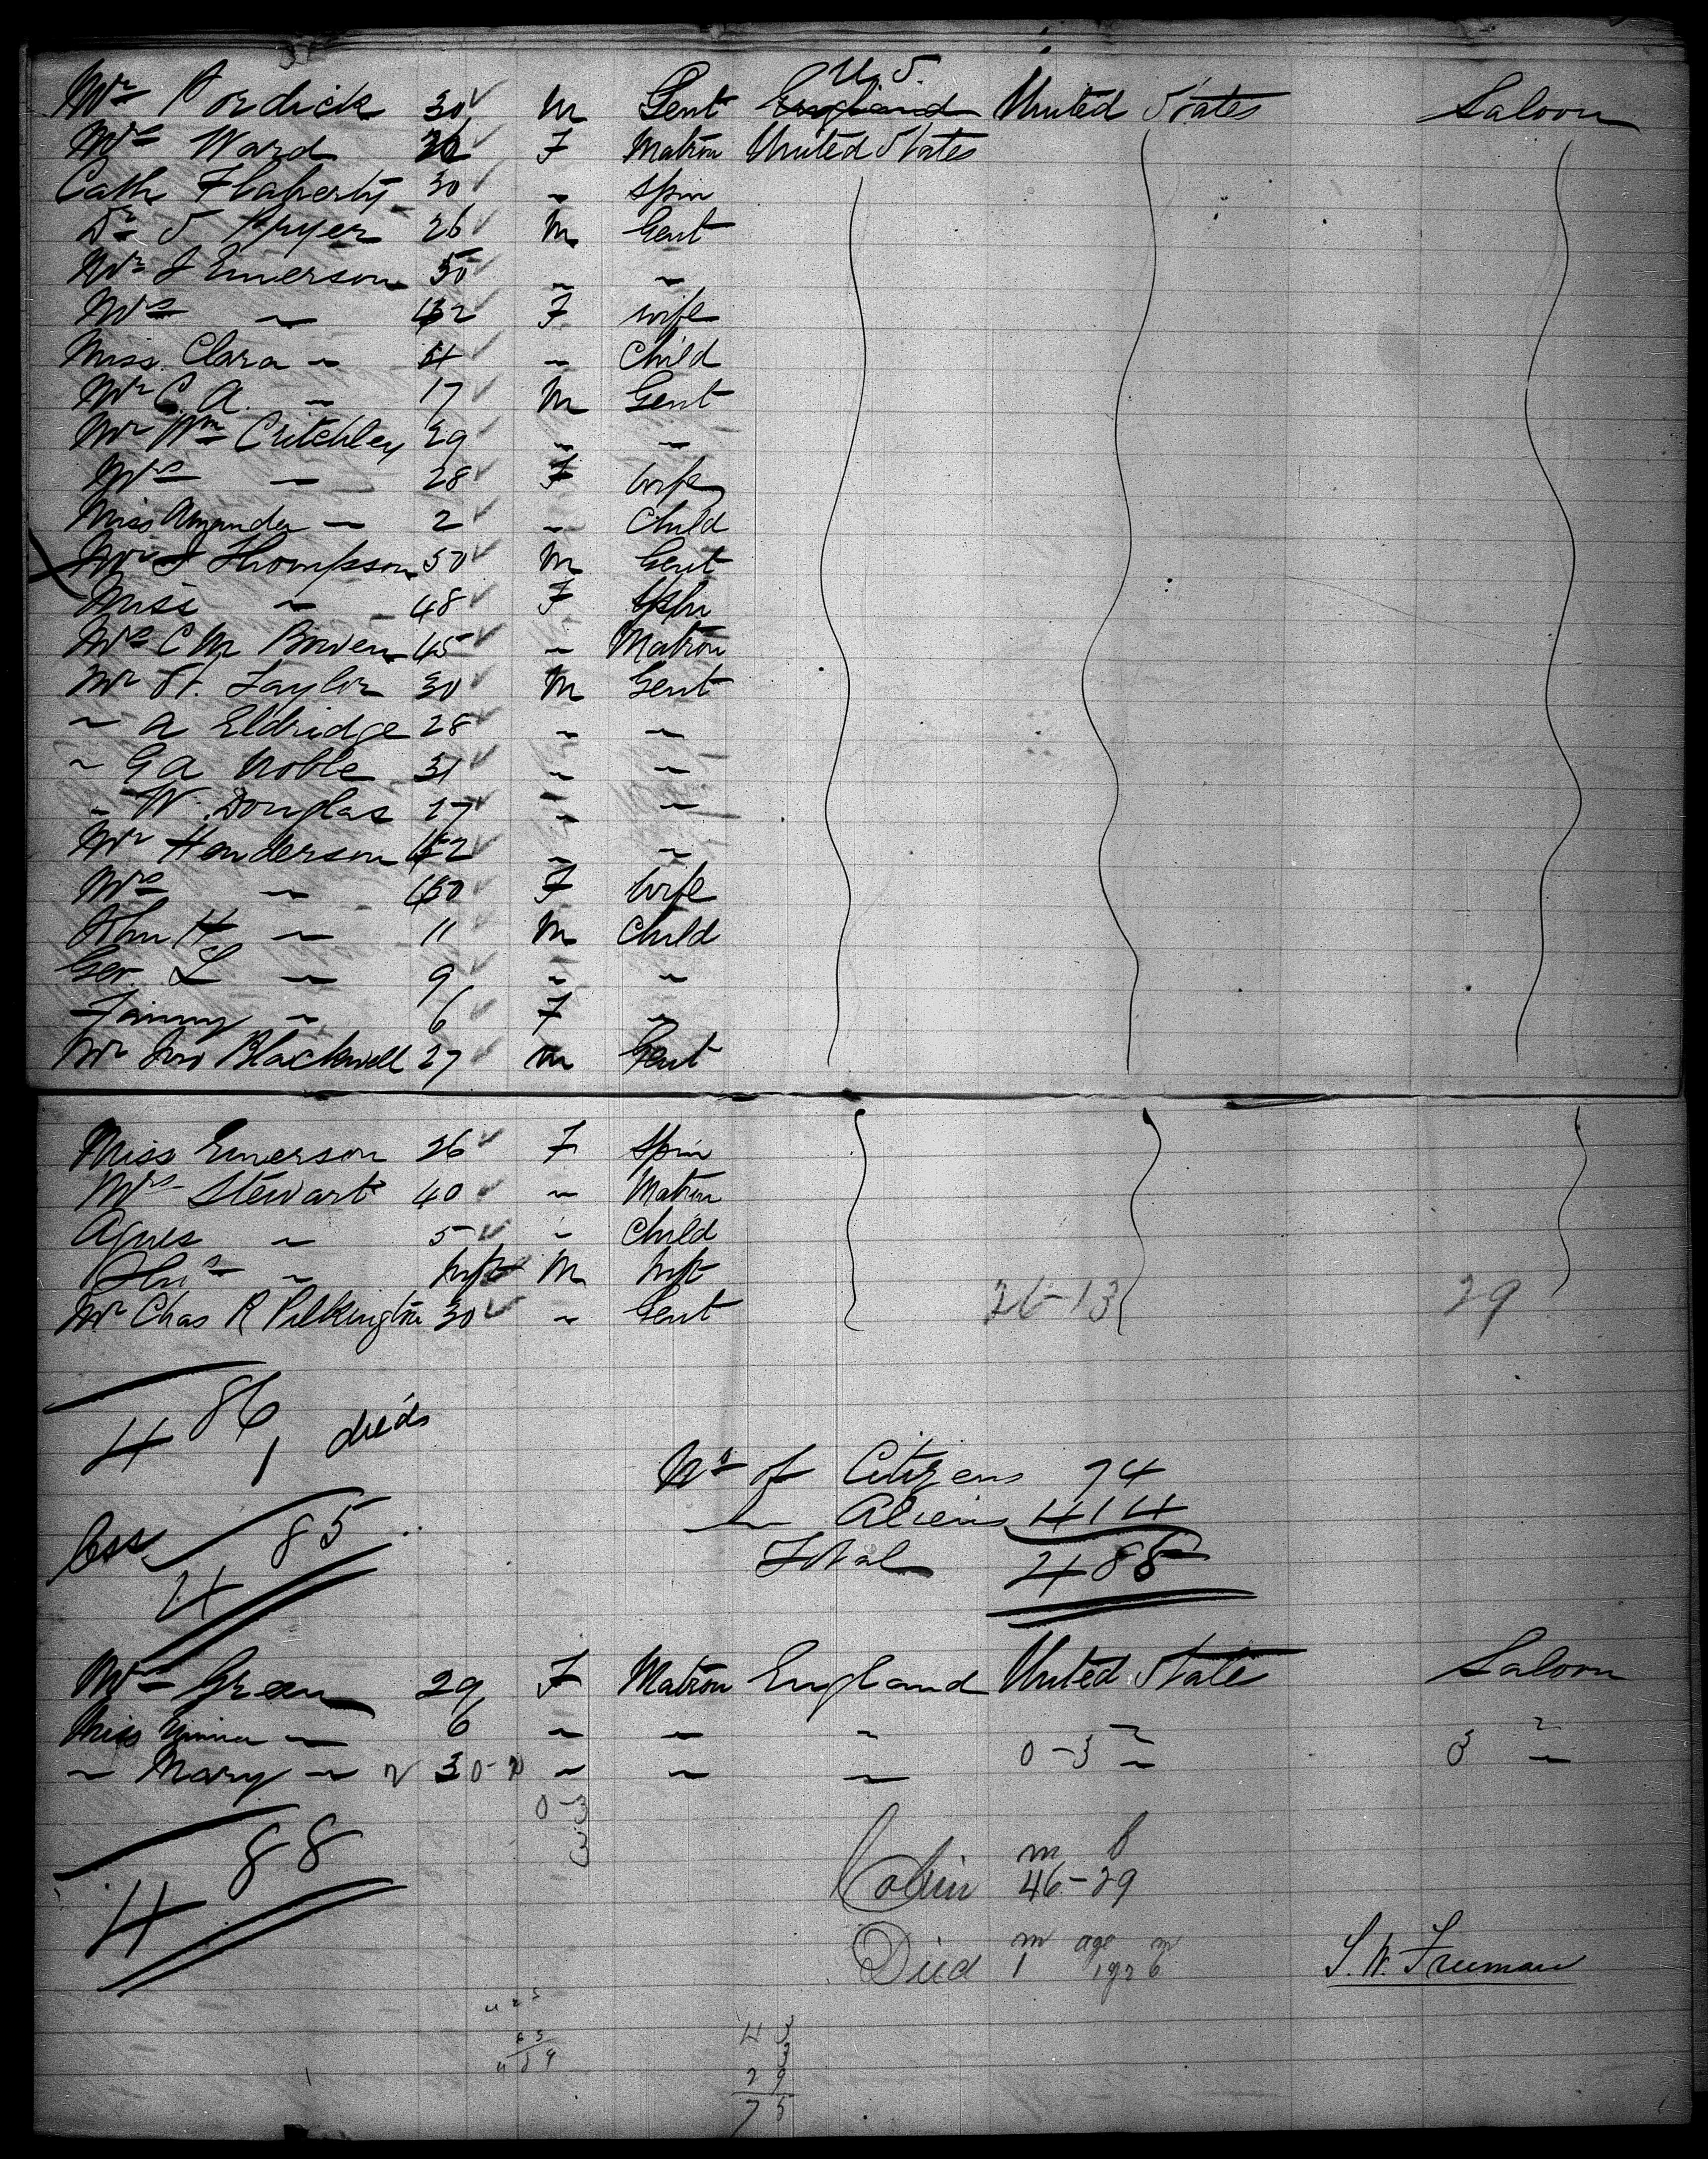 U.S.
Mr Pordick 30 M Gent England United States Saloon
Mrs Ward 26 F Matron United States
Cath Flaherty 30 " Spin
Dr S Pryer 26 M Gent
Mr J Emerson 50 " "
Mrs " 42 F wife
Miss Clara " 4 " Child
Mr C. A. " 17 M Gent
Mr Wm Critchley 29 " "
Mrs " 28 F wife
Miss Amanda " 2 " Child
Mr J Thompson 50 M Gent
Miss " 48 F Spin
Mrs C M Bowen 45 " Matron
Mr H. Taylor 30 M Gent
" A Eldridge 28 " "
" G A Noble 31 " "
" W. Douglas 27 " "
Mr Henderson 52 " "
Mrs " 50 F wife
John H " 11 M Child
Geo. L " 9 " "
Fanny " 6 F "
Mr Jno Blackwell 27 M Gent
Miss Emerson 26 F Spin
Mrs Stewart 40 " Matron
Agnes " 5 " Child
" Inft M Inft
Mr Chas R Pilkington 30 " Gent 26-13 29
486
1 died
No of Citizens 74
" Aliens 414
Less 485
Total 488
Mrs Green 29 F Matron England United States Saloon
Miss " 6 " " " 0-3 " 3 "
" Mary " 30 " " "
0-3
3
488
m f
Cabin 46-29
m age m
Died 1 1 6
S. W. Freeman
43
3
29
75